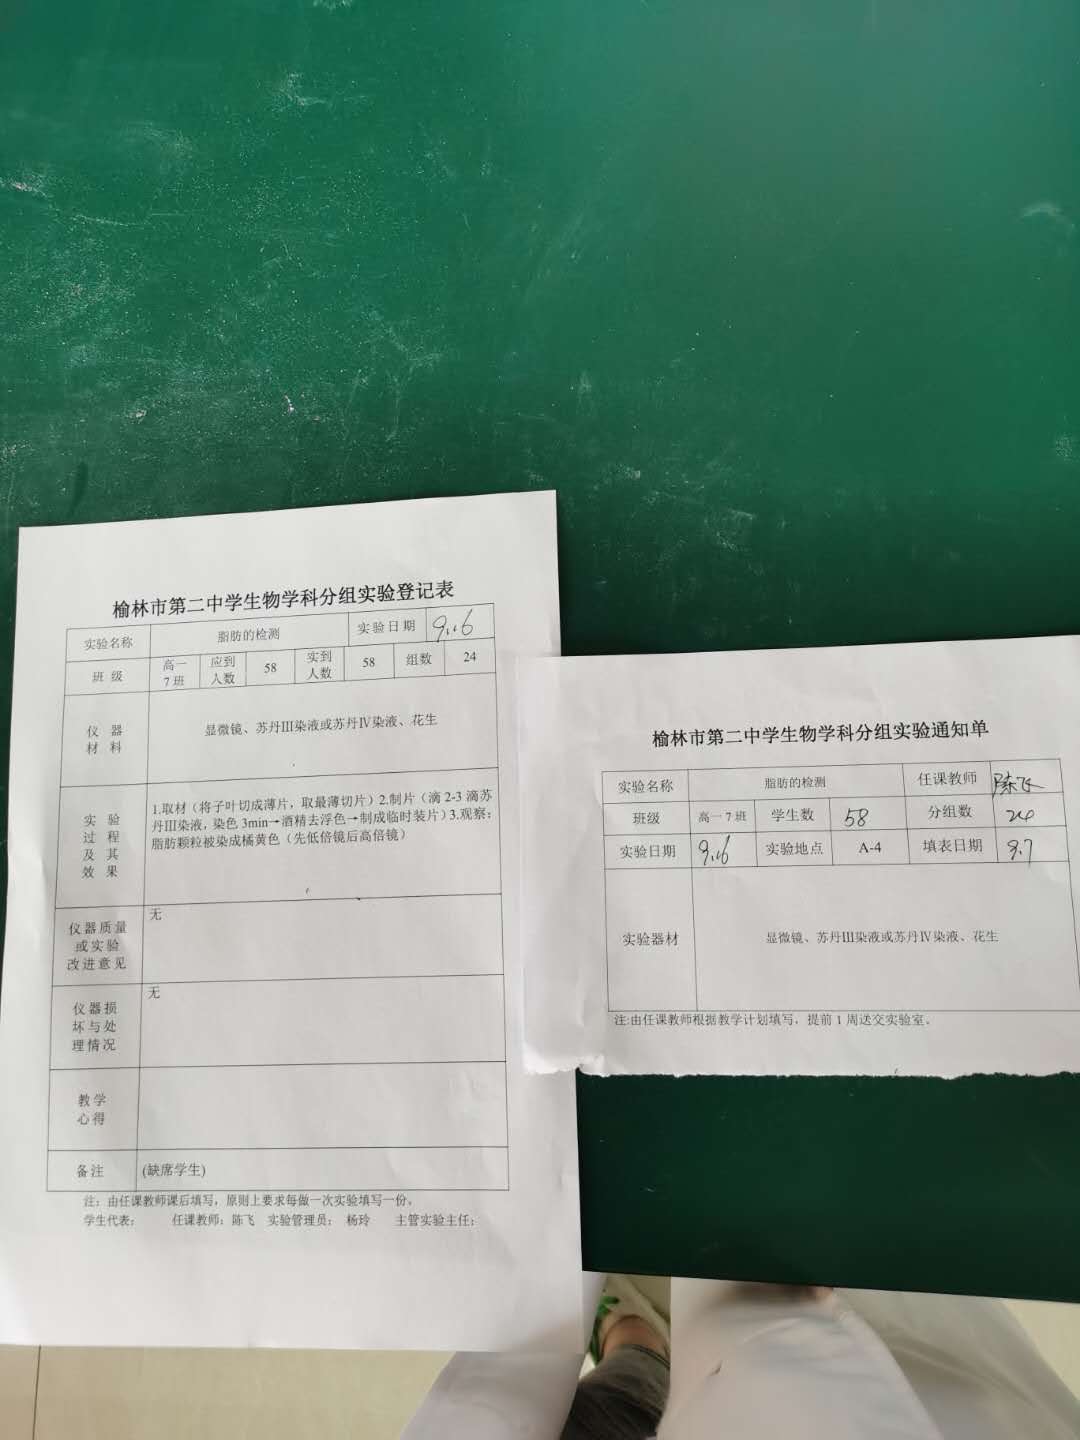 榆林市第二中学生物学科分组实验登记表
实验名称 脂肪的检测 实验日期 9.16
班级 高一7班 应到人数 58 实到人数 58 组数 24
仪器材料 显微镜、苏丹Ⅲ染液或苏丹Ⅳ染液、花生
实验过程及其效果
1.取材（将子叶切成薄片，取最薄切片）2.制片（滴 2-3 滴苏
丹Ⅲ染液，染色 3min→酒精去浮色→制成临时装片）3.观察：
脂肪颗粒被染成橘黄色（先低倍镜后高倍镜）
仪器质量或实验改进意见 无
仪器损坏与处理情况 无
教学心得
备注 (缺席学生)
注：由任课教师课后填写，原则上要求每做一次实验填写一份。
学生代表： 任课教师：陈飞 实验管理员： 杨玲 主管实验主任：
榆林市第二中学生物学科分组实验通知单
实验名称 脂肪的检测 任课教师 陈飞
班级 高一 7 班 学生数 58 分组数 24
实验日期 9.16 实验地点 A-4 填表日期 9.7
实验器材 显微镜、苏丹Ⅲ染液或苏丹Ⅳ染液、花生
注:由任课教师根据教学计划填写，提前 1 周送交实验室。